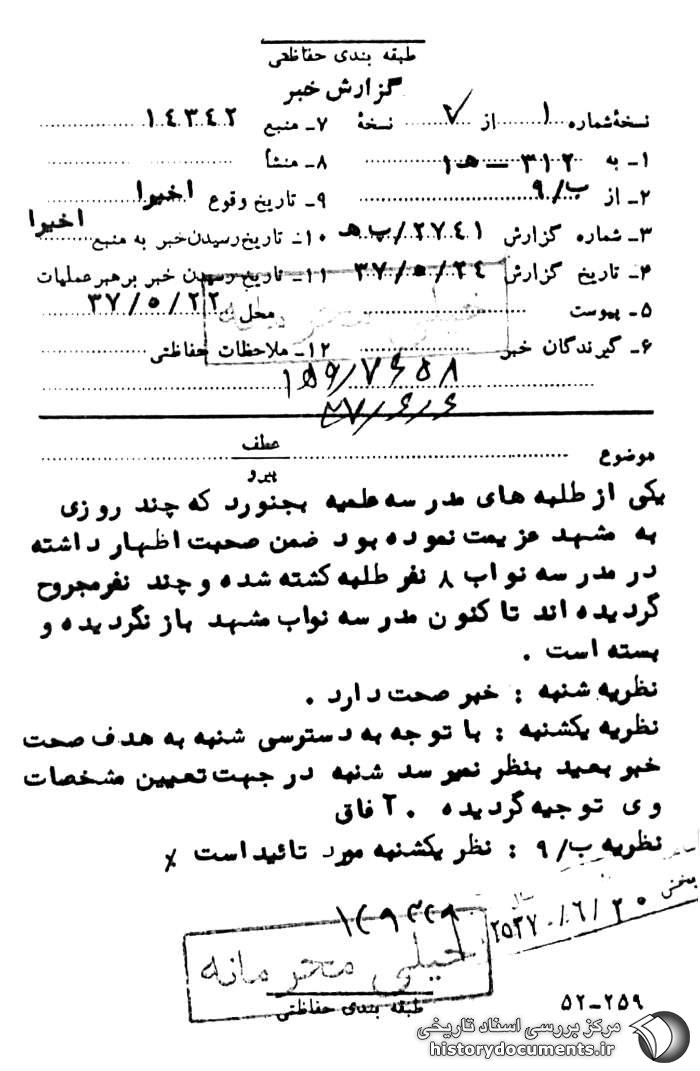 طبقه بندی حفاظتی
گزارش خبر
نسخهٔ شماره ۱ از ۷ نسخهٔ
۱ـ به ۳۱۲ ـ هـ ۱
۲ـ از ۹/ب
۳ـ شماره گزارش ۲۷٤۱/ب هـ
۴ـ تاریخ گزارش ۳۷/۵/۲٤
۵ـ پیوست
۶ـ گیرندگان خبر
۷ـ منبع ۱٤۳٤۲
۸ـ منشأ
۹ـ تاریخ وقوع اخیرا
۱۰ـ تاریخ رسیدن خبر به منبع اخیرا
۱۱ـ تاریخ رسیدن خبر برهبر عملیات
محل ۳۷/۵/۲۲
۱۲ـ ملاحظات حفاظتی
خیلی محرمانه
موضوع
عطف
پیرو
یکی از طلبه های مدرسه علمیه بجنورد که چند روزی
به مشهد عزیمت نموده بود ضمن صحبت اظهار داشته
در مدرسه نواب ۸ نفر طلبه کشته شده و چند نفر مجروح
گردیده اند تا کنون مدرسه نواب مشهد باز نگردیده و
بسته است .
نظریه شنبه : خبر صحت دارد .
نظریه یکشنبه : با توجه به دسترسی شنبه به هدف صحت
خبر بعید بنظر نمیرسد شنبه در جهت تعیین مشخصات
وی توجیه گردیده . آفاق
نظریه ۹/ب : نظر یکشنبه مورد تائید است ٪
۲۵۳۷/۶/۲۰
خیلی محرمانه
طبقه بندی حفاظتی
۵۲-۲۵۹
مرکز بررسی اسناد تاریخی
historydocuments.ir